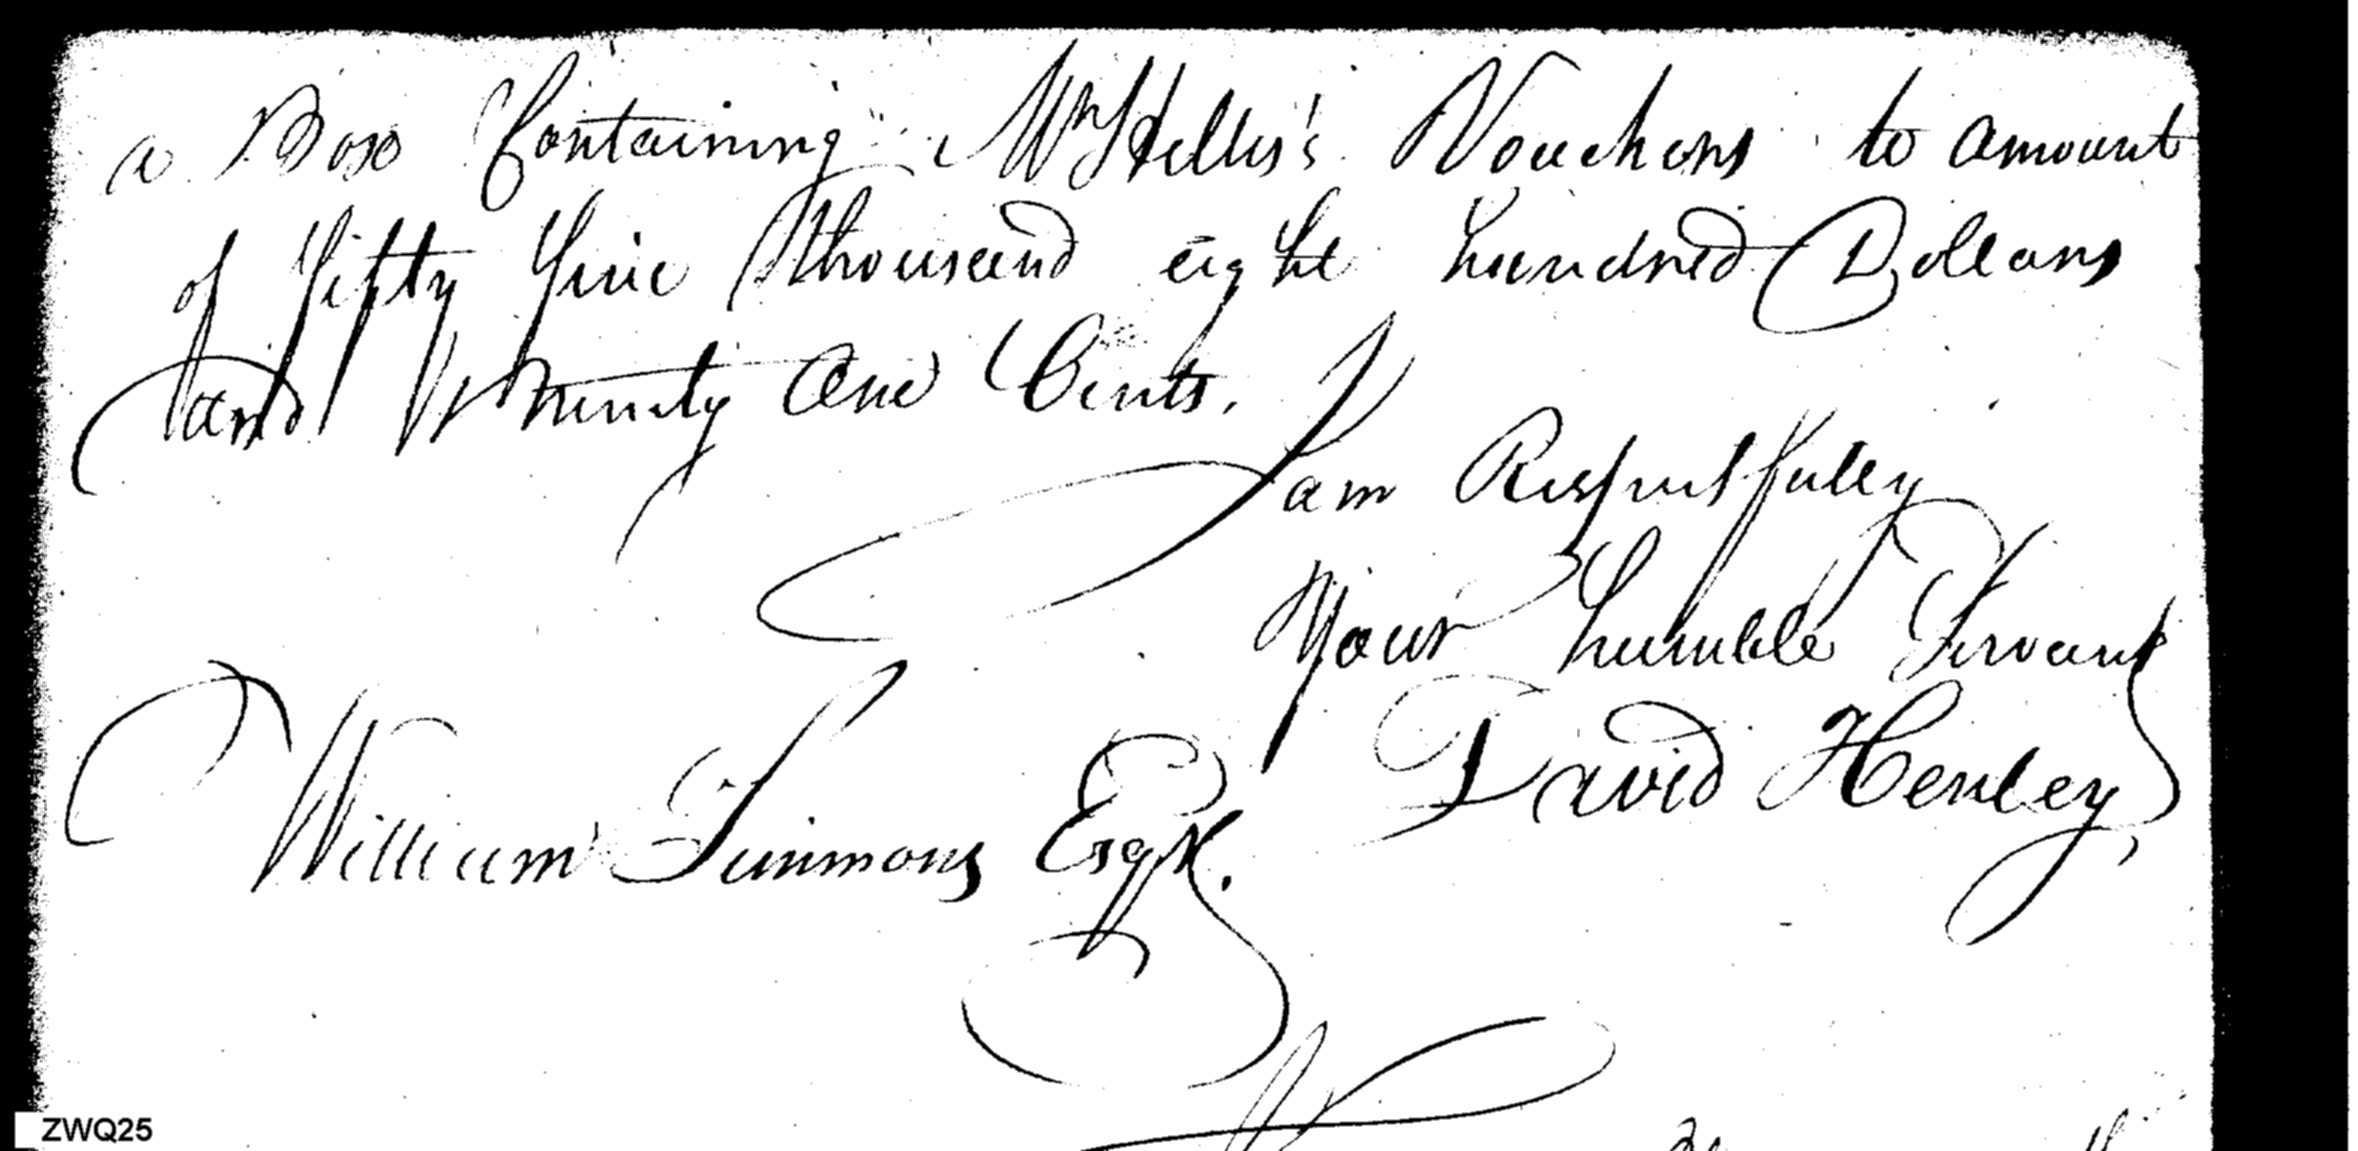 a Box Containing Mr Hillis's Vouchers to amount
of fifty five thousand eight hundred Dollars
and Ninety One Cents.
I am Respectfully
Your humble Servant
David Henley,
William Simmons Esqr.
ZWQ25